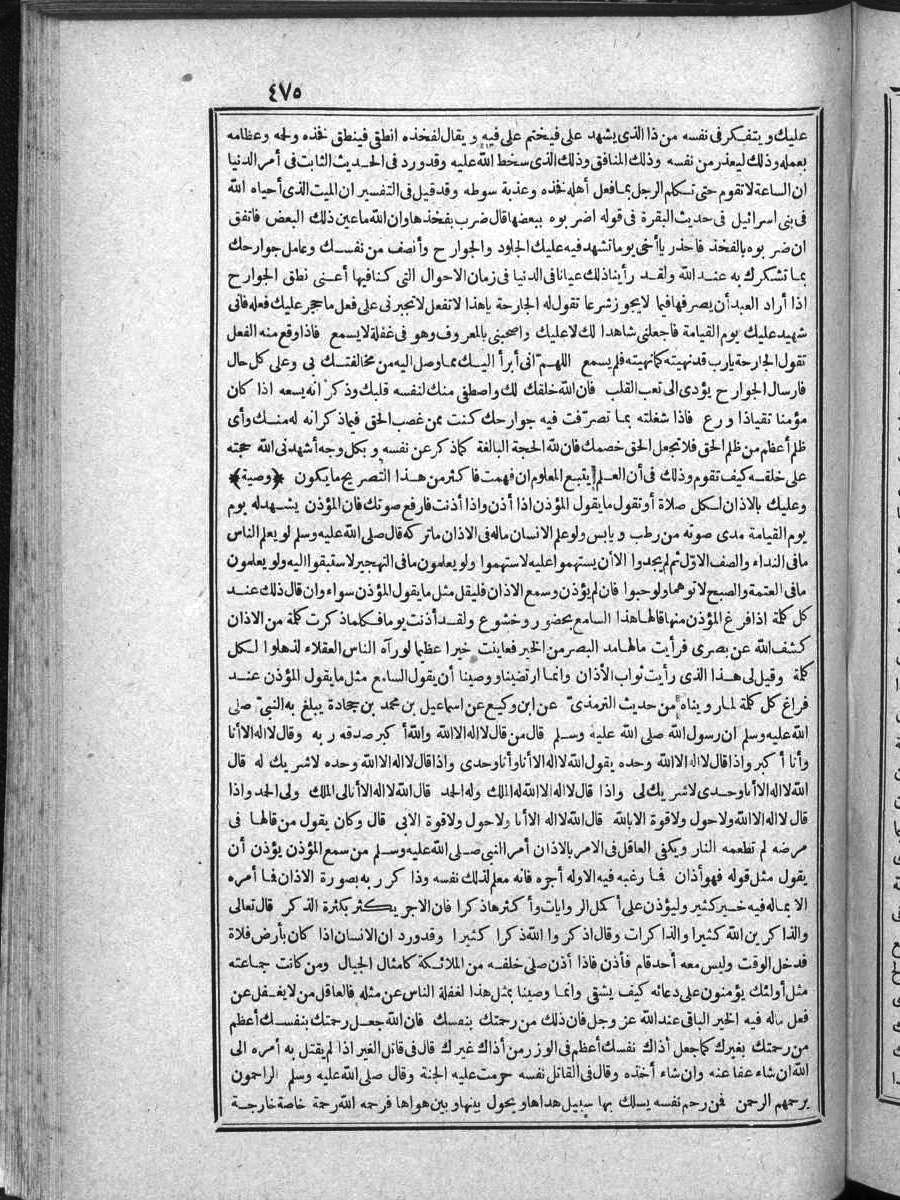 ٤٧٥
عليك ويتفكر فى نفسه من ذا الذى يشهد على فيختم على فيه ويقال لفخذه انطقى فينطق فخذه ولحمه وعظامه
بعمله وذلك ليعذر من نفسه وذلك المنافق وذلك الذى سخط الله عليه وقدورد فى الحديث الثابت فى أمر الدنيا
ان الساعة لاتقوم حتى تكلم الرجل بما فعل أهله فخذه وعذبة سوطه وقد قيل فى التفسير ان الميت الذى أحياه الله
فى بنى اسرائيل فى حديث البقرة فى قوله اضربوه ببعضها قال ضرب بفخذها وان الله ماعين ذلك البعض فاتفق
ان ضربوه بالفخذ فاحذر يا أخى يوما تشهد فيه عليك الجلود والجوارح وأنصف من نفسك وعامل جوارحك
بما تشكرك به عند الله ولقد رأينا ذلك عيانا فى الدنيا فى زمان الاحوال التى كنا فيها أعنى نطق الجوارح
اذا أراد العبد أن يصرفها فيما لا يجوز شرعا تقول له الجارحة ياهذا لا تفعل لا تجبرنى على فعل ما حجر عليك فعله فانى
شهيد عليك يوم القيامة فاجعلنى شاهدا لك لا عليك واصحبنى بالمعروف وهو فى غفلة لا يسمع فاذا وقع منه الفعل
تقول الجارحة يارب قد نهيته كما نهيته فلم يسمع اللهم انى أبرأ اليك مما وصل اليه من مخالفتك بى وعلى كل حال
فارسال الجوارح يؤدى الى تعب القلب فان الله خلقك لك واصطفى منك لنفسه قلبك وذكر انه يسعه اذا كان
مؤمنا تقيا ذا ورع فاذا شغلته بما تصرفت فيه جوارحك كنت ممن غصب الحق فيما ذكر انه له منك وأى
ظلم أعظم من ظلم الحق فلا تجعل الحق خصمك فان لله الحجة البالغة كما ذكر عن نفسه وبكل وجه أشهدنى الله حجته
على خلقه كيف تقوم وذلك فى أن العلم يتبع المعلوم ان فهمت فأكثر من هذا التصريح ما يكون ﴿وصية﴾
وعليك بالاذان لكل صلاة أو تقول ما يقول المؤذن اذا أذن واذا أذنت فارفع صوتك فان المؤذن يشهد له يوم
يوم القيامة مدى صوته من رطب ويابس ولو علم الانسان ماله فى الاذان ما تركه قال صلى الله عليه وسلم لو يعلم الناس
ما فى النداء والصف الاوّل ثم لم يجدوا الا أن يستهموا عليه لاستهموا ولو يعلمون ما فى التهجير لاستبقوا اليه ولو يعلمون
ما فى العتمة والصبح لاتوهما ولو حبوا فان لم يؤذن وسمع الاذان فليقل مثل ما يقول المؤذن سواء وان قال ذلك عند
كل كلمة اذا فرغ المؤذن منها قالها هذا السامع بحضور وخشوع ولقد أذنت يوما فكلما ذكرت كلمة من الاذان
كشف الله عن بصرى فرأيت ما لها مد البصر من الخير فعاينت خيرا عظيما لو رآه الناس العقلاء لذهلوا لكل
كلمة وقيل لى هذا الذى رأيت ثواب الأذان وانما ارتضينا ووصينا أن يقول السامع مثل ما يقول المؤذن عند
فراغ كل كلمة لما رويناه من حديث الترمذىّ عن ابن وكيع عن اسماعيل بن محمد بن جحادة يبلغ به النبىّ صلى
الله عليه وسلم ان رسول الله صلى الله عليه وسلم قال من قال لا اله الا الله والله أكبر صدقه ربه وقال لا اله الا أنا
وأنا أكبر واذا قال لا اله الا الله وحده يقول الله لا اله الا أنا وأنا وحدى واذا قال لا اله الا الله وحده لا شريك له قال
الله لا اله الا أنا وحدى لا شريك لى واذا قال لا اله الا الله له الملك وله الحمد قال الله لا اله الا أنا لى الملك ولى الحمد واذا
قال لا اله الا الله ولا حول ولا قوة الا بالله قال الله لا اله الا أنا ولا حول ولا قوة الا بى قال وكان يقول من قالها فى
مرضه لم تطعمه النار ويكفى العاقل فى الامر بالاذان أمر النبى صلى الله عليه وسلم من سمع المؤذن يؤذن أن
يقول مثل قوله فهو أذان فما رغبه فيه الا وله أجره فانه معلم لذلك نفسه وذاكر ربه بصورة الاذان فما أمره
الا بما له فيه خير كثير وليؤذن على أكمل الروايات وأكثرها ذكرا فان الاجر يكثر بكثرة الذكر قال تعالى
والذاكرين الله كثيرا والذاكرات وقال اذكروا الله ذكرا كثيرا وقد ورد ان الانسان اذا كان بأرض فلاة
فدخل الوقت وليس معه أحد قام فأذن فاذا أذن صلى خلفه من الملائكة كامثال الجبال ومن كانت جماعته
مثل أولئك يؤمنون على دعائه كيف يشقى وانما وصينا بمثل هذا لغفلة الناس عن مثله فالعاقل من لا يغفل عن
فعل ماله فيه الخير الباقى عند الله عز وجل فان ذلك من رحمتك بنفسك فان الله جعل رحمتك بنفسك أعظم
من رحمتك بغيرك كما جعل أذاك نفسك أعظم فى الوزر من أذاك غيرك قال فى قاتل الغير اذا لم يقتل به أمره الى
الله ان شاء عفا عنه وان شاء أخذه وقال فى القاتل نفسه حرمت عليه الجنة وقال صلى الله عليه وسلم الراحمون
يرحمهم الرحمن فمن رحم نفسه يسلك بها سبيل هداها ويحول بينها وبين هواها فرحمه الله رحمة خاصة خارجة